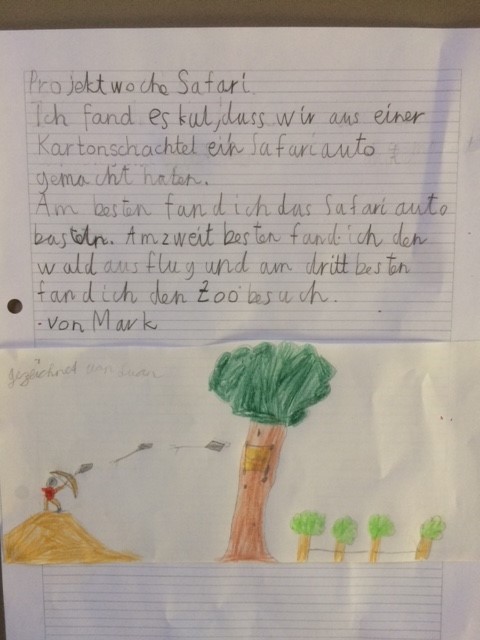 Projektwoche Safari.
Ich fand es kul, dass wir aus einer
Kartonschachtel ein Safariauto
gemacht haten.
Am besten fand ich das Safariauto
basteln. Am zweit besten fand ich den
wald ausflug und am dritt besten
fand ich den Zoo besuch.
·von Mark
gezeichnet von